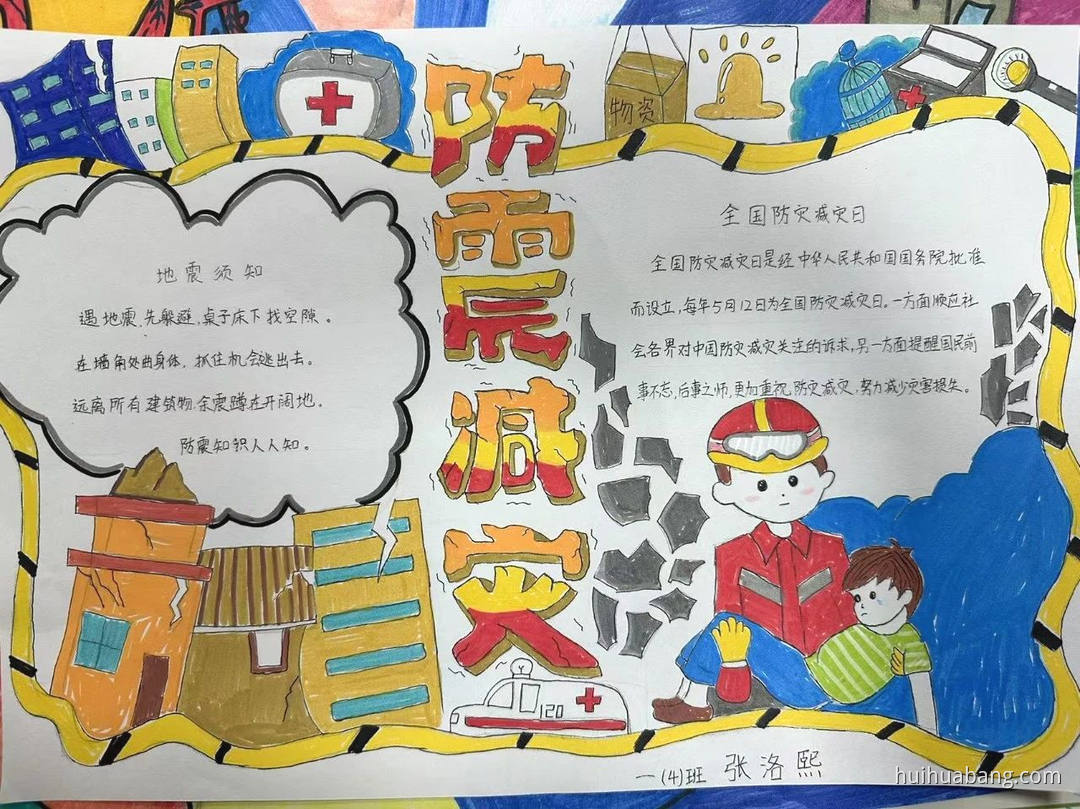 物资
防震减灾
地震须知
遇地震,先躲避,桌子床下找空隙。
在墙角处曲身体,抓住机会逃出去。
远离所有建筑物,余震蹲在开阔地。
防震知识人人知。
全国防灾减灾日
全国防灾减灾日是经中华人民共和国国务院批准
而设立,每年5月12日为全国防灾减灾日。一方面顺应社
会各界对中国防灾减灾关注的诉求,另一方面提醒国民前
事不忘,后事之师,更加重视,防灾减灾,努力减少灾害损失。
120
一(4)班 张洛熙
huihuabang.com